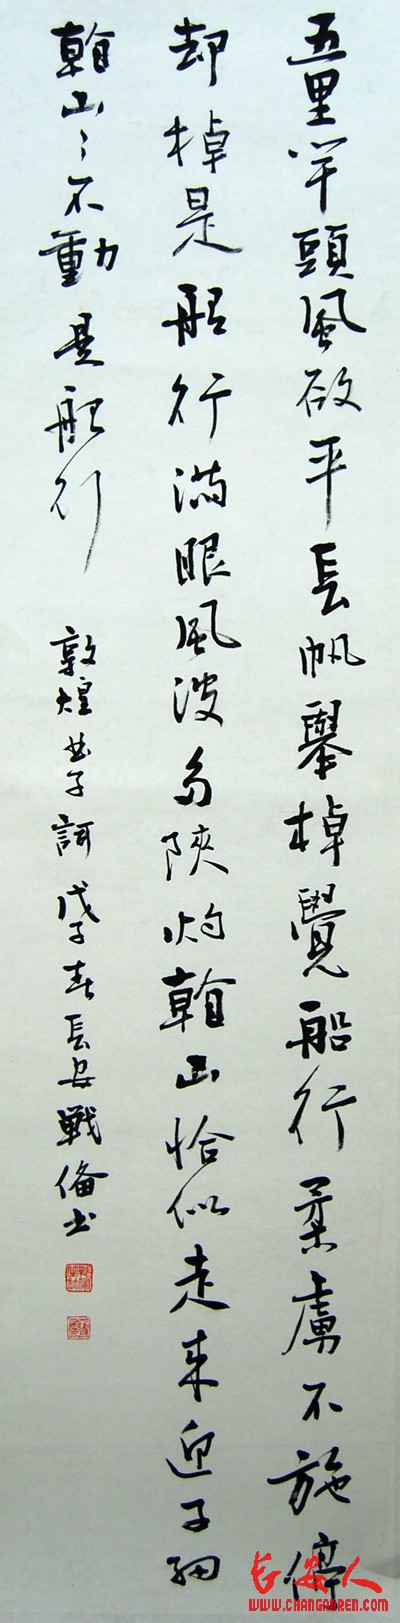 五里竿頭風欲平長帆舉棹覺船行柔虜不施停
却棹是船行滿眼風波多陝灼翰山恰似走來迎子細
翰山〻不動是船行
敦煌曲子詞戊子春長安戰備书
长安人
WWW.CHANGANREN.COM